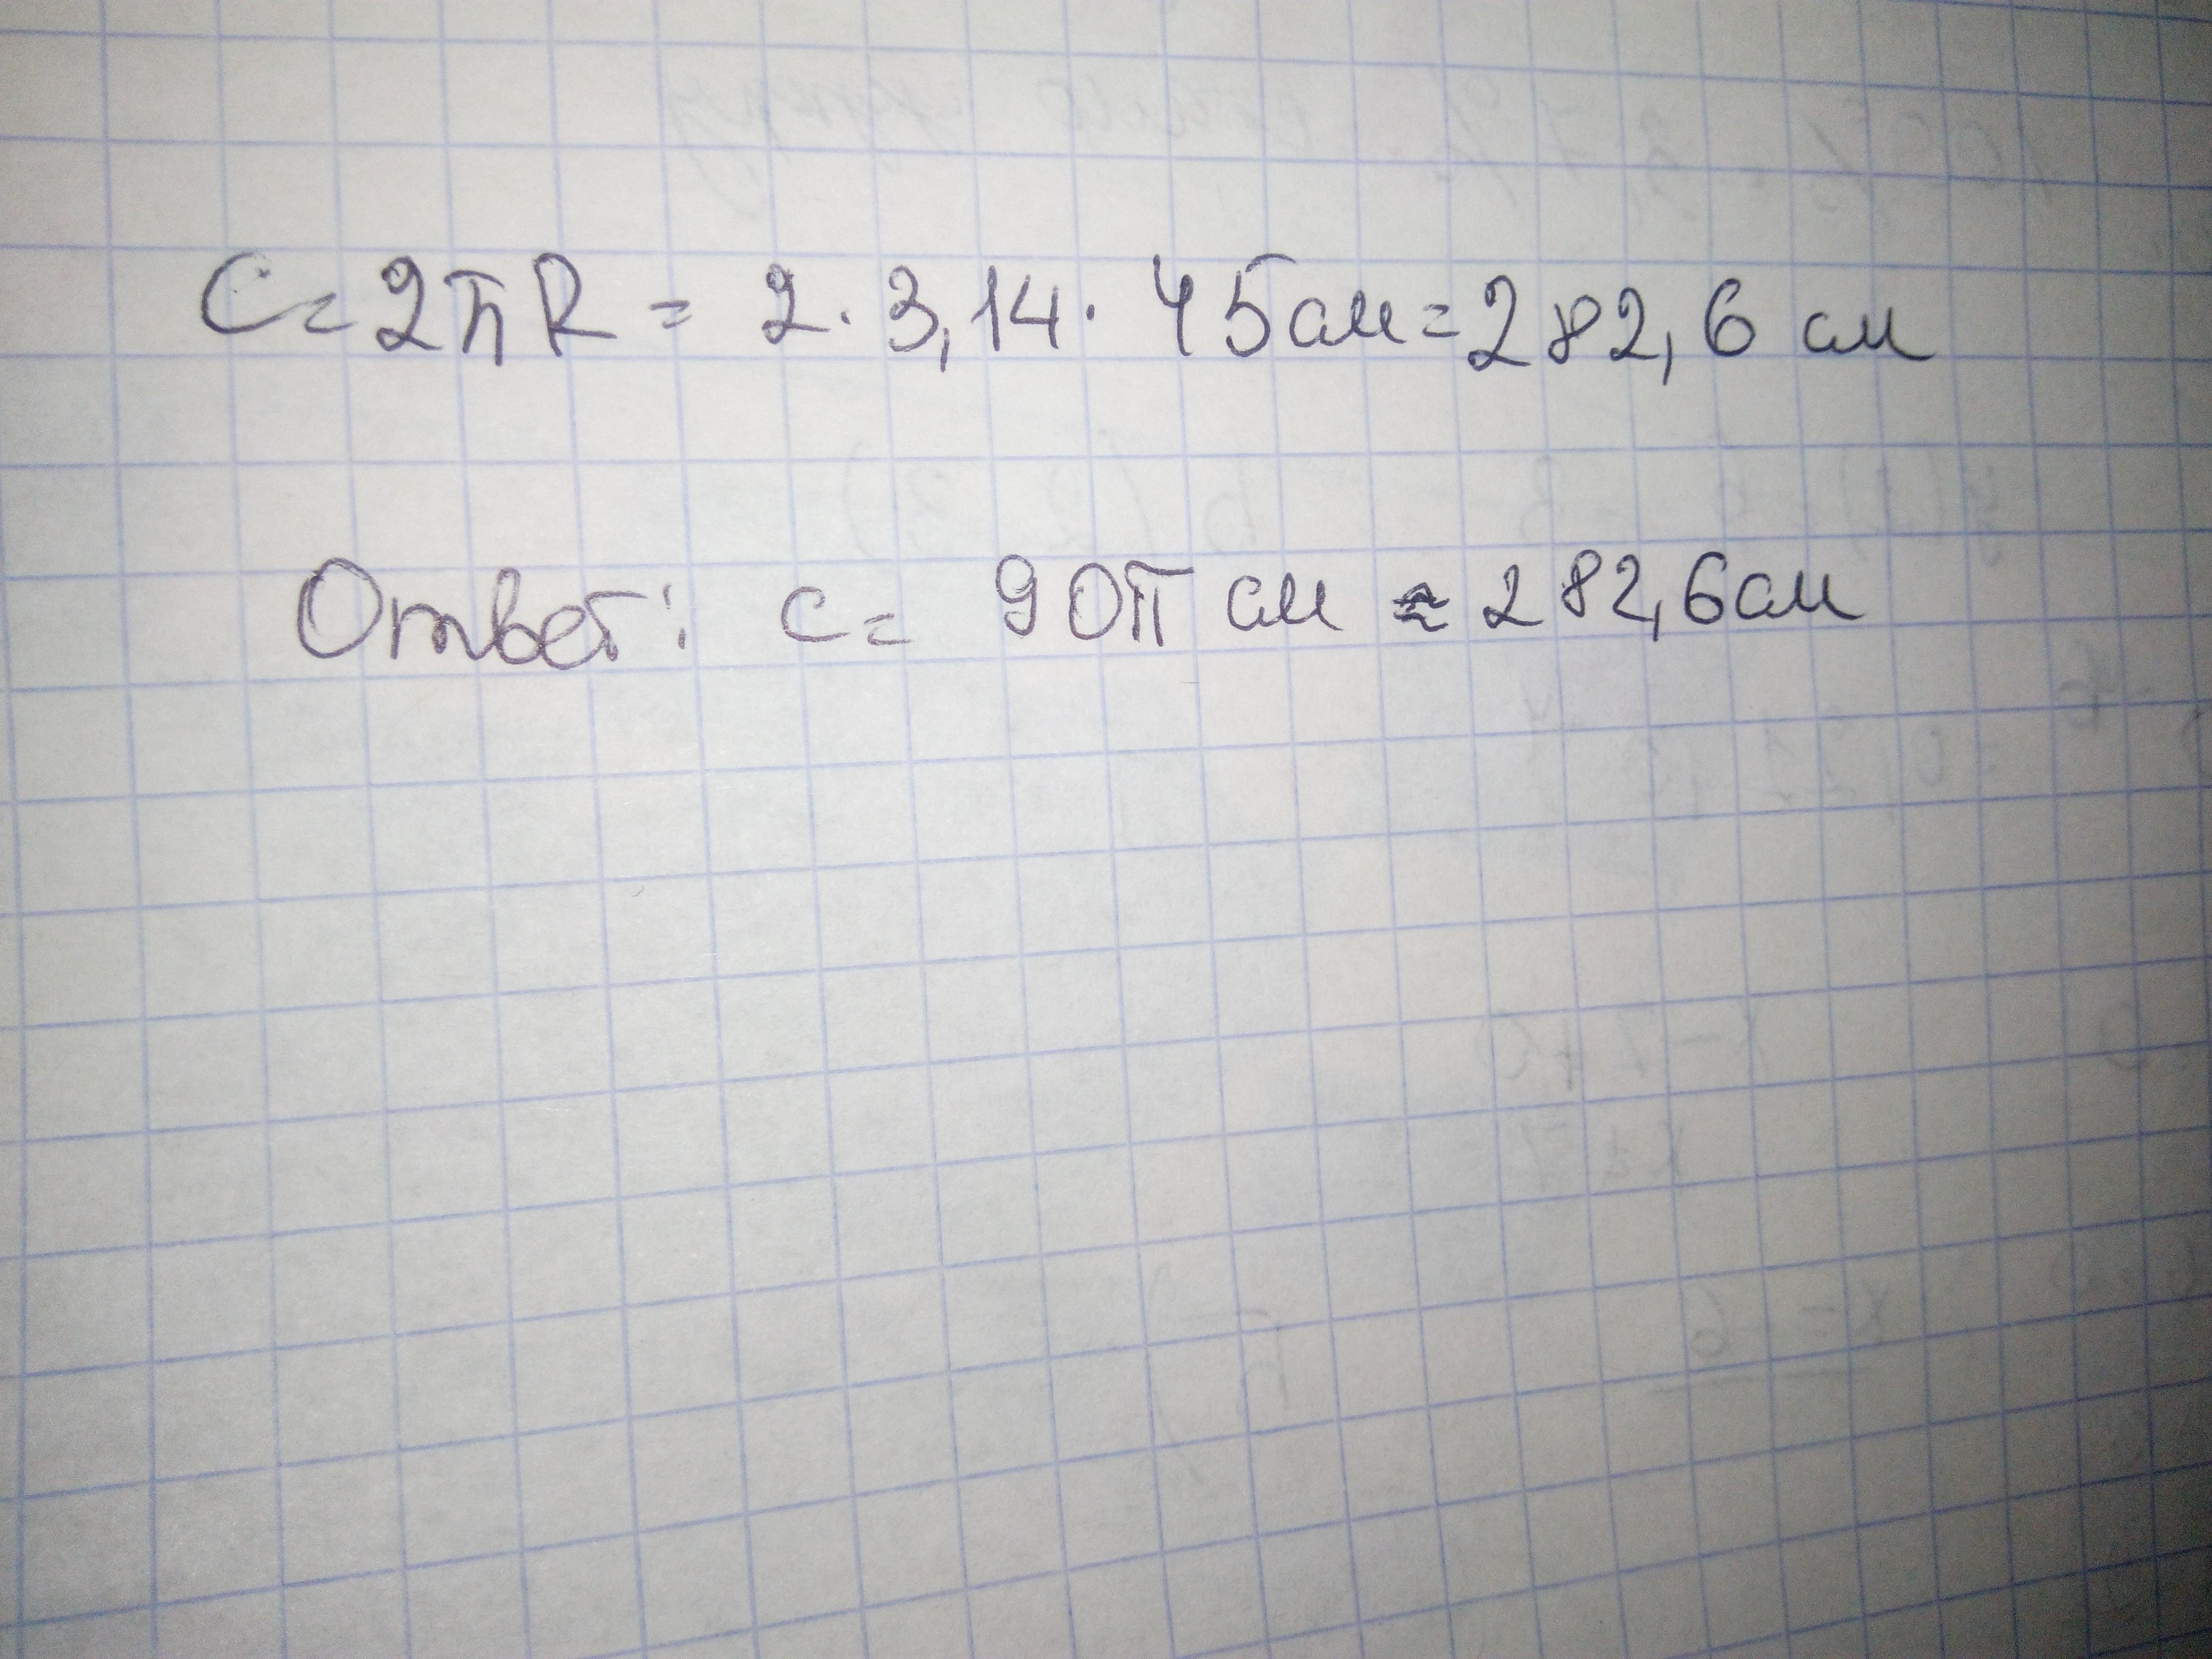 C = 2πR = 2 · 3,14 · 45 см = 282,6 см
Ответ: c = 90π см ≈ 282,6 см